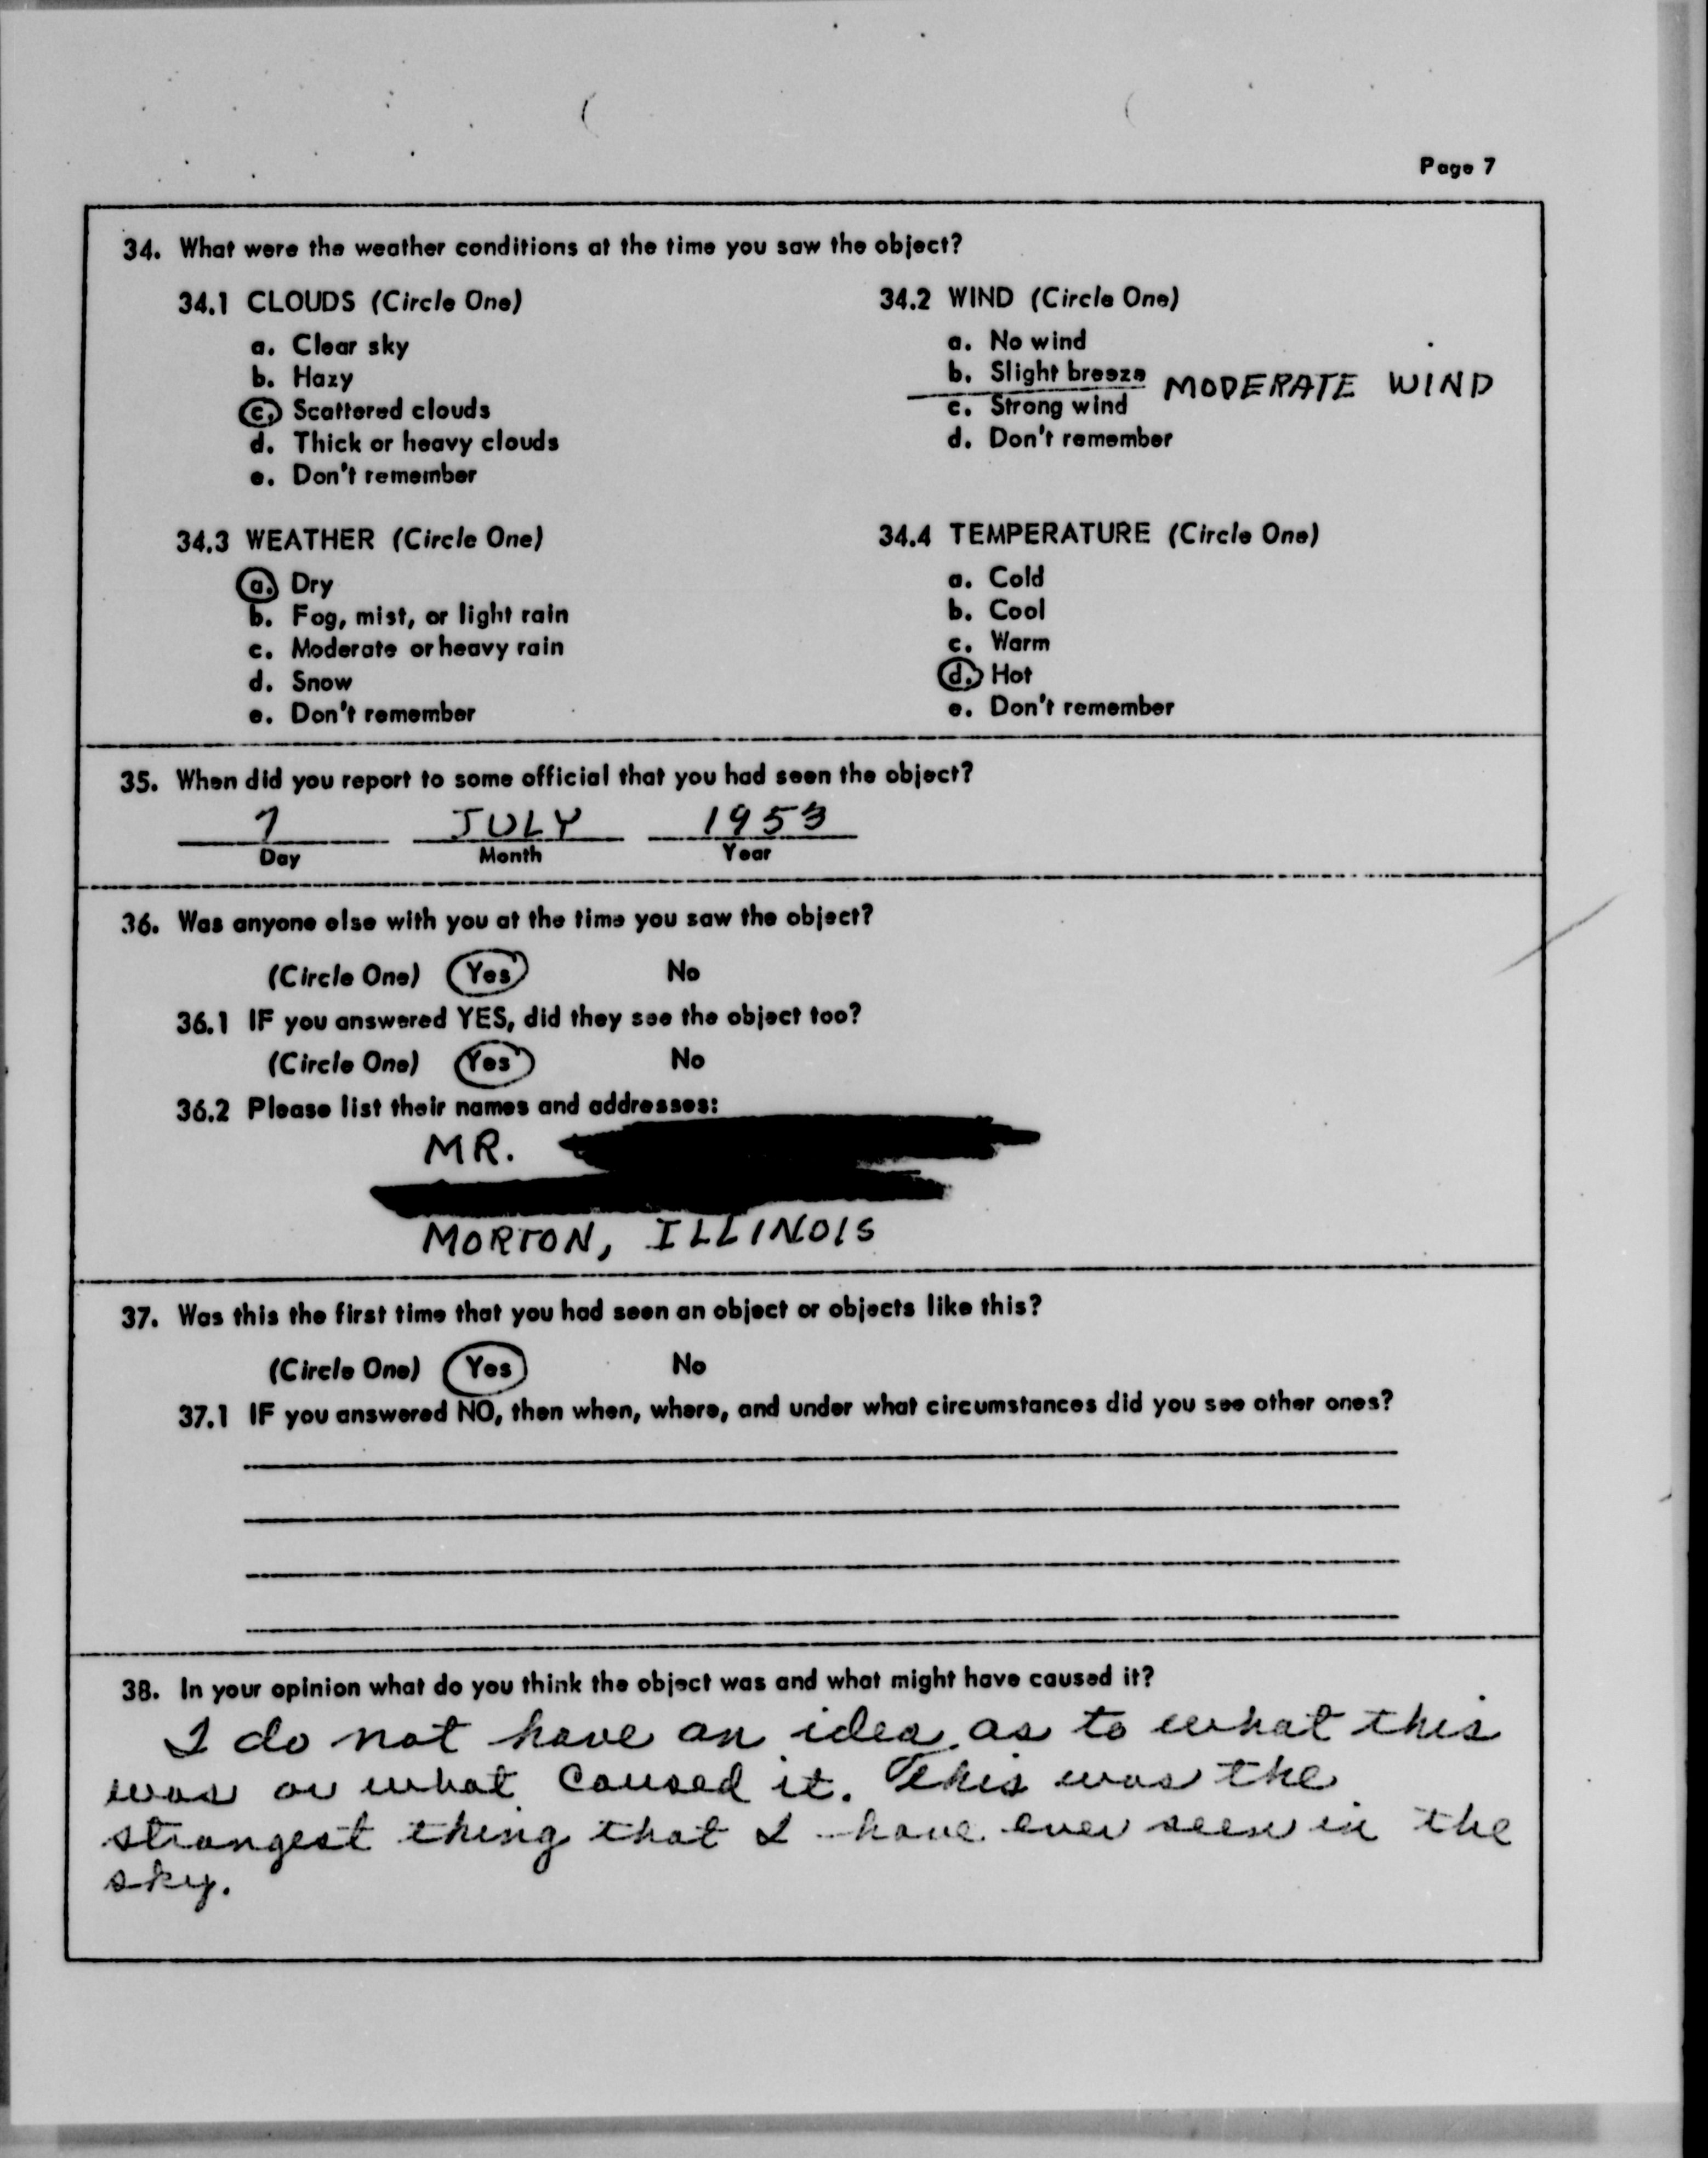 Page 7
34. What were the weather conditions at the time you saw the object?
34.1 CLOUDS (Circle One)
a. Clear sky
b. Hazy
c. Scattered clouds
d. Thick or heavy clouds
e. Don't remember
34.2 WIND (Circle One)
a. No wind
b. Slight breeze
MODERATE WIND
c. Strong wind
d. Don't remember
34.3 WEATHER (Circle One)
a. Dry
b. Fog, mist, or light rain
c. Moderate or heavy rain
d. Snow
e. Don't remember
34.4 TEMPERATURE (Circle One)
a. Cold
b. Cool
c. Warm
d. Hot
e. Don't remember
35. When did you report to some official that you had seen the object?
7 JULY 1953
Day Month Year
36. Was anyone else with you at the time you saw the object?
(Circle One) Yes No
36.1 IF you answered YES, did they see the object too?
(Circle One) Yes No
36.2 Please list their names and addresses:
MR.
MORTON, ILLINOIS
37. Was this the first time that you had seen an object or objects like this?
(Circle One) Yes No
37.1 IF you answered NO, then when, where, and under what circumstances did you see other ones?
38. In your opinion what do you think the object was and what might have caused it?
I do not have an idea as to what this
was or what caused it. This was the
strangest thing that I have ever seen in the
sky.